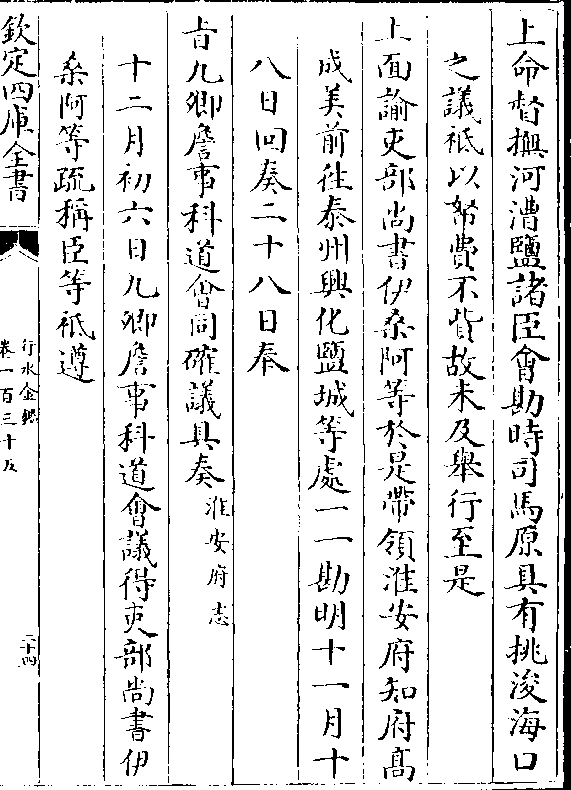 上命督撫河漕鹽諸臣㑹勘時司馬原具有挑浚海口
之議祗以帑費不貲故未及舉行至是
上面諭吏部尚書伊桑阿等於是帶領淮安府知府髙
成美前往泰州興化鹽城等處一一勘明十一月十
八日回奏二十八日奉
㫖九卿詹事科道㑹同確議具奏淮安府志
十二月初六日九卿詹事科道㑹議得吏部尚書伊
桑阿等疏稱臣等祗遵
欽定四庫全書
行水金鑑
卷一百三十五
二十四